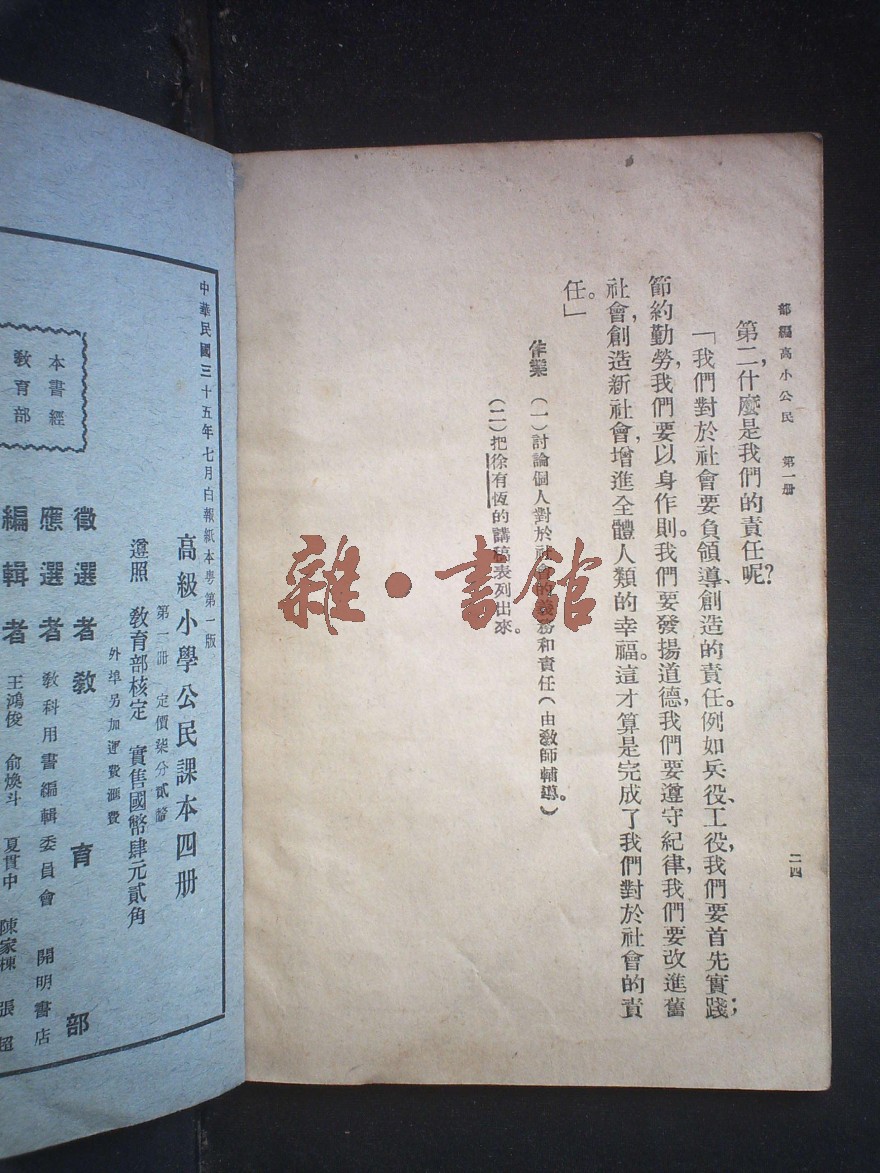 部編高小公民　第一册
二四
第二，什麼是我們的責任呢？
「我們對於社會要負領導、創造的責任。例如兵役、工役，我們要首先實踐；
節約勤勞，我們要以身作則。我們要發揚道德，我們要遵守紀律，我們要改進舊
社會，創造新社會，增進全體人類的幸福。這才算是完成了我們對於社會的責
任。」
作業　（一）討論個人對於社會的義務和責任（由敎師輔導。）
（二）把徐有恆的講稿表列出來。
雜·書館
中華民國三十五年七月白報紙本粤第一版
高級小學公民課本四册
第一册　定價柒分貳釐
遵照　敎育部核定　實售國幣肆元貳角
外埠另加運費滙費
徵選者　敎育部
應選者　敎科用書編輯委員會　開明書店
編輯者　王鴻俊　俞煥斗　夏貫中　陳家棟　張超
本書經
敎育部